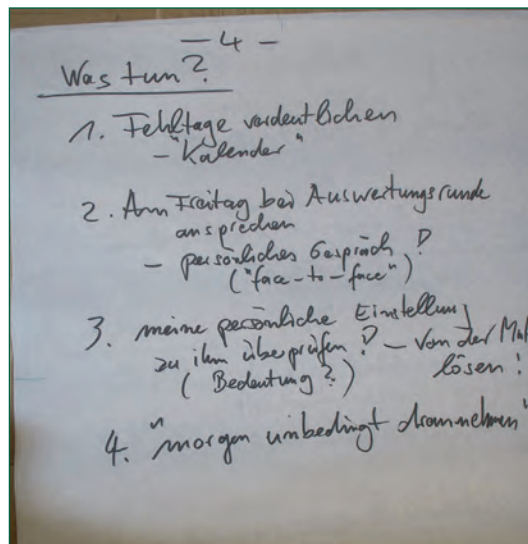 – 4 –
Was tun?
1. Fehltage verdeutlichen
– "Kalender"
2. Am Freitag bei Auswertungsrunde
ansprechen
– persönliches Gespräch!
("face-to-face")
3. meine persönliche Einstellung
zu ihm überprüfen! – Von der
(Bedeutung?) lösen!
4. "morgen unbedingt drannehmen"